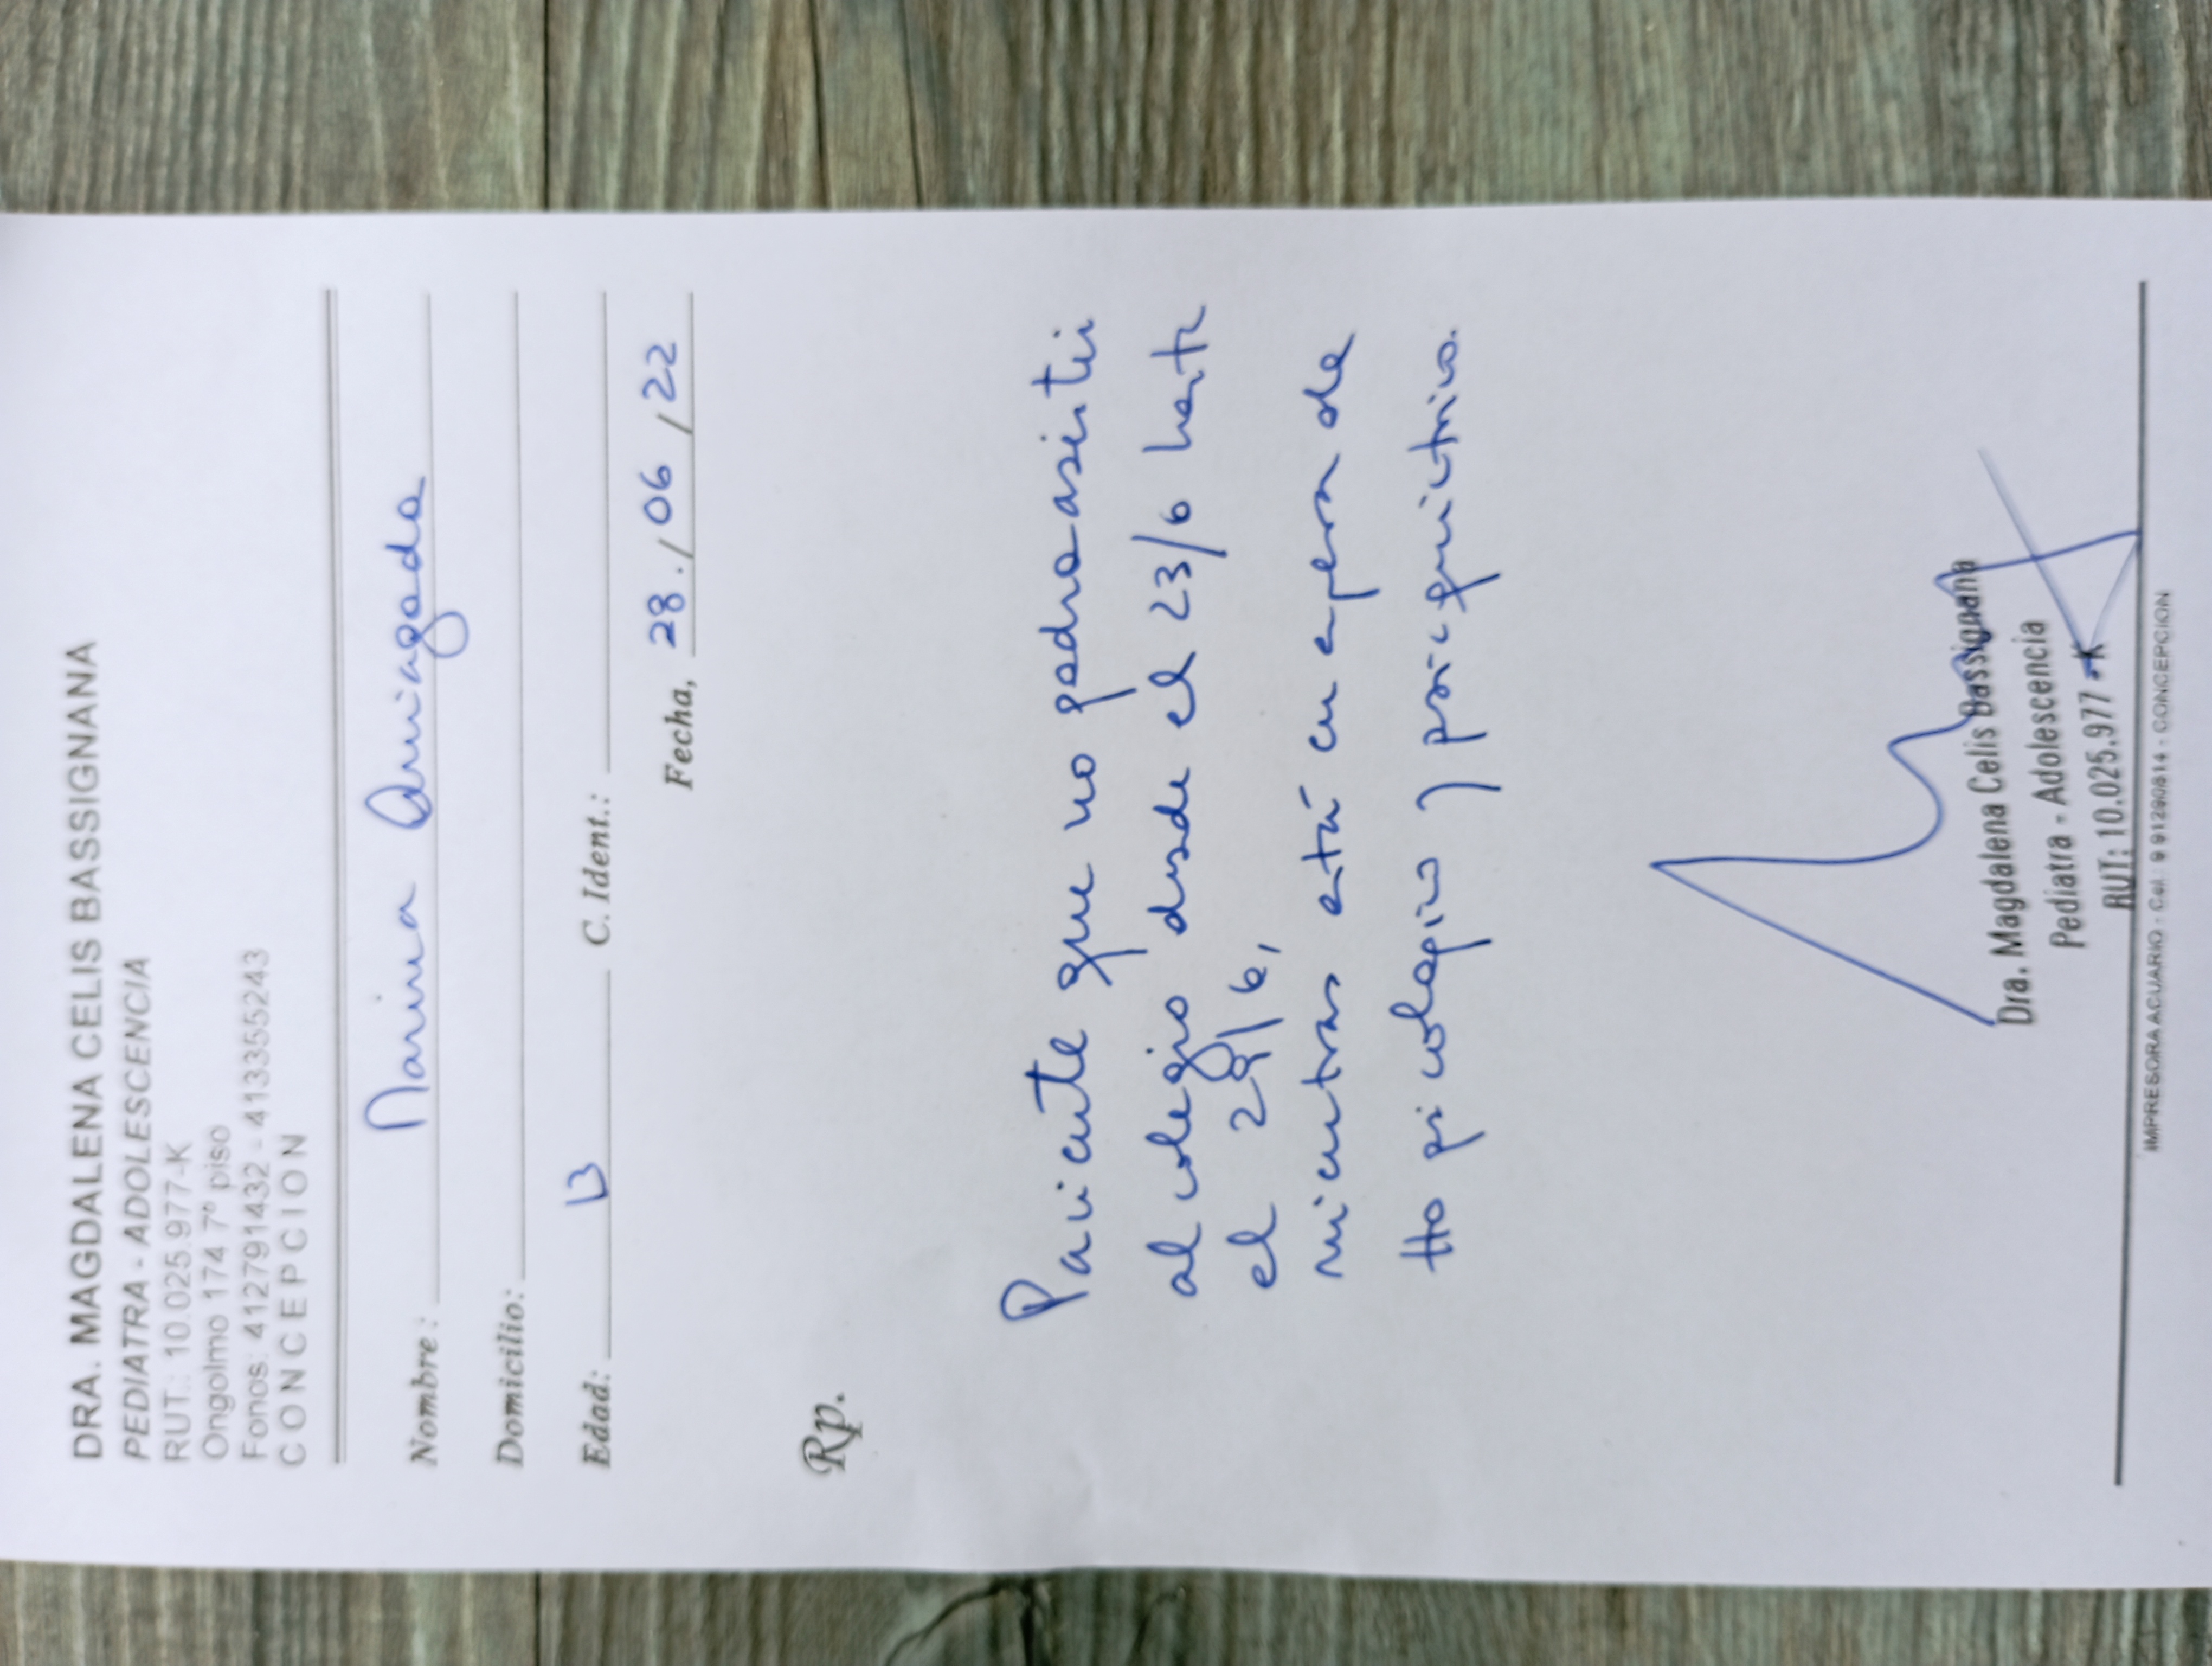 DRA. MAGDALENA CELIS BASSIGNANA
PEDIATRA - ADOLESCENCIA
RUT.: 10.025.977-K
Ongolmo 174 7º piso
Fonos: 412791432 - 413355243
CONCEPCION
Nombre: Marina Arriagada
Domicilio:
Edad: 13 C. Ident.:
Fecha, 28 / 06 / 22
Rp.
Paciente que no podrá asistir
al colegio desde el 23/6 hasta
el 28/6,
mientras está en espera de
tto psicológico y psiquiátrico.
Dra. Magdalena Celis Bassignana
Pediatra - Adolescencia
RUT: 10.025.977-K
IMPRESORA ACUARIO - Cel.: 9 91290814 - CONCEPCION